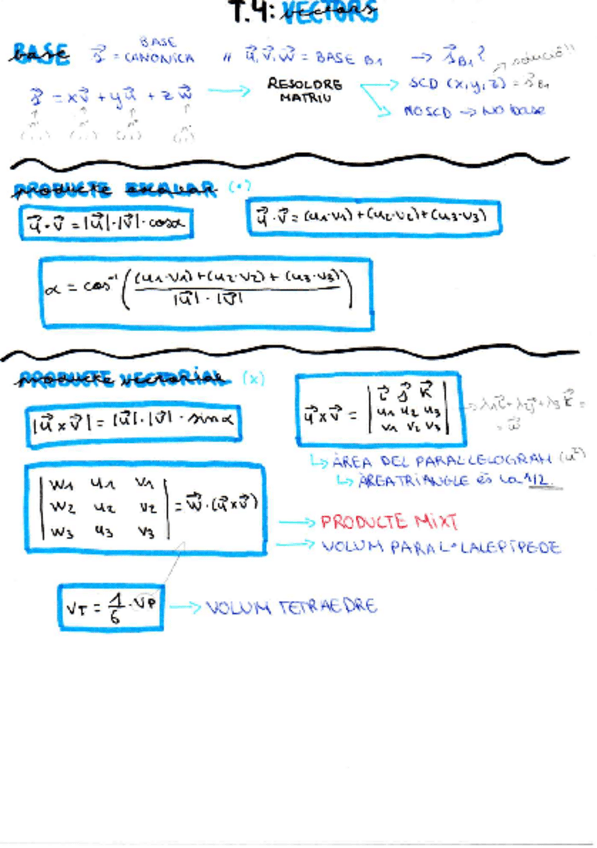 T.4: VECTORS
BASE s⃗ = BASE CANONICA // u⃗, v⃗, w⃗ = BASE B1 → s⃗B1?
s⃗ = xv⃗ + yu⃗ + zw⃗ → RESOLDRE MATRIU → SCD (x,y,z) = s⃗B1 → solució!!
→ NO SCD → NO base
PRODUCTE ESCALAR (•)
u⃗·v⃗ = |u⃗|·|v⃗|·cosα
u⃗·v⃗ = (u1·v1)+(u2·v2)+(u3·v3)
α = cos⁻¹ ( (u1·v1)+(u2·v2)+(u3·v3) / |u⃗|·|v⃗| )
PRODUCTE VECTORIAL (x)
|u⃗ x v⃗| = |u⃗|·|v⃗|·sinα
u⃗ x v⃗ = | i⃗ j⃗ k⃗
u1 u2 u3
v1 v2 v3 | → λ1i⃗+λ2j⃗+λ3k⃗ =
= w⃗
↳ ÀREA DEL PARAL·LELOGRAM (u²)
↳ ÀREA TRIANGLE és la 1/2.
| w1 u1 v1
w2 u2 v2
w3 u3 v3 | = w⃗·(u⃗ x v⃗)
→ PRODUCTE MIXT
→ VOLUM PARAL·LALEPÍPEDE
VT = 1/6 · VP → VOLUM TETRAEDRE